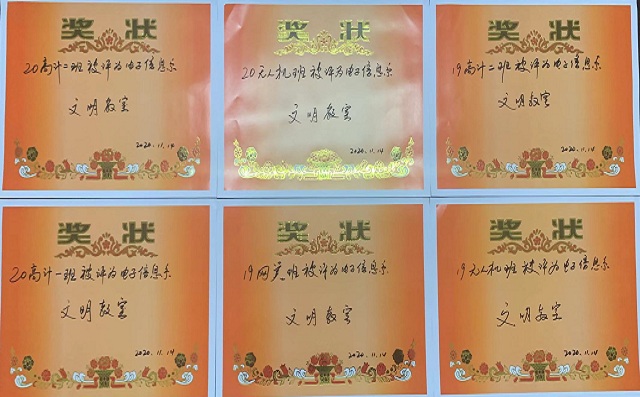 奖状
20高计二班被评为电子信息系
文明教室
2020.11.14
奖状
20无人机班被评为电子信息系
文明教室
2020.11.14
奖状
19高计二班被评为电子信息系
文明教室
2020.11.14
奖状
20高计一班被评为电子信息系
文明教室
2020.11.14
奖状
19网英班被评为电子信息系
文明教室
2020.11.14
奖状
19无人机班被评为电子信息系
文明教室
2020.11.14